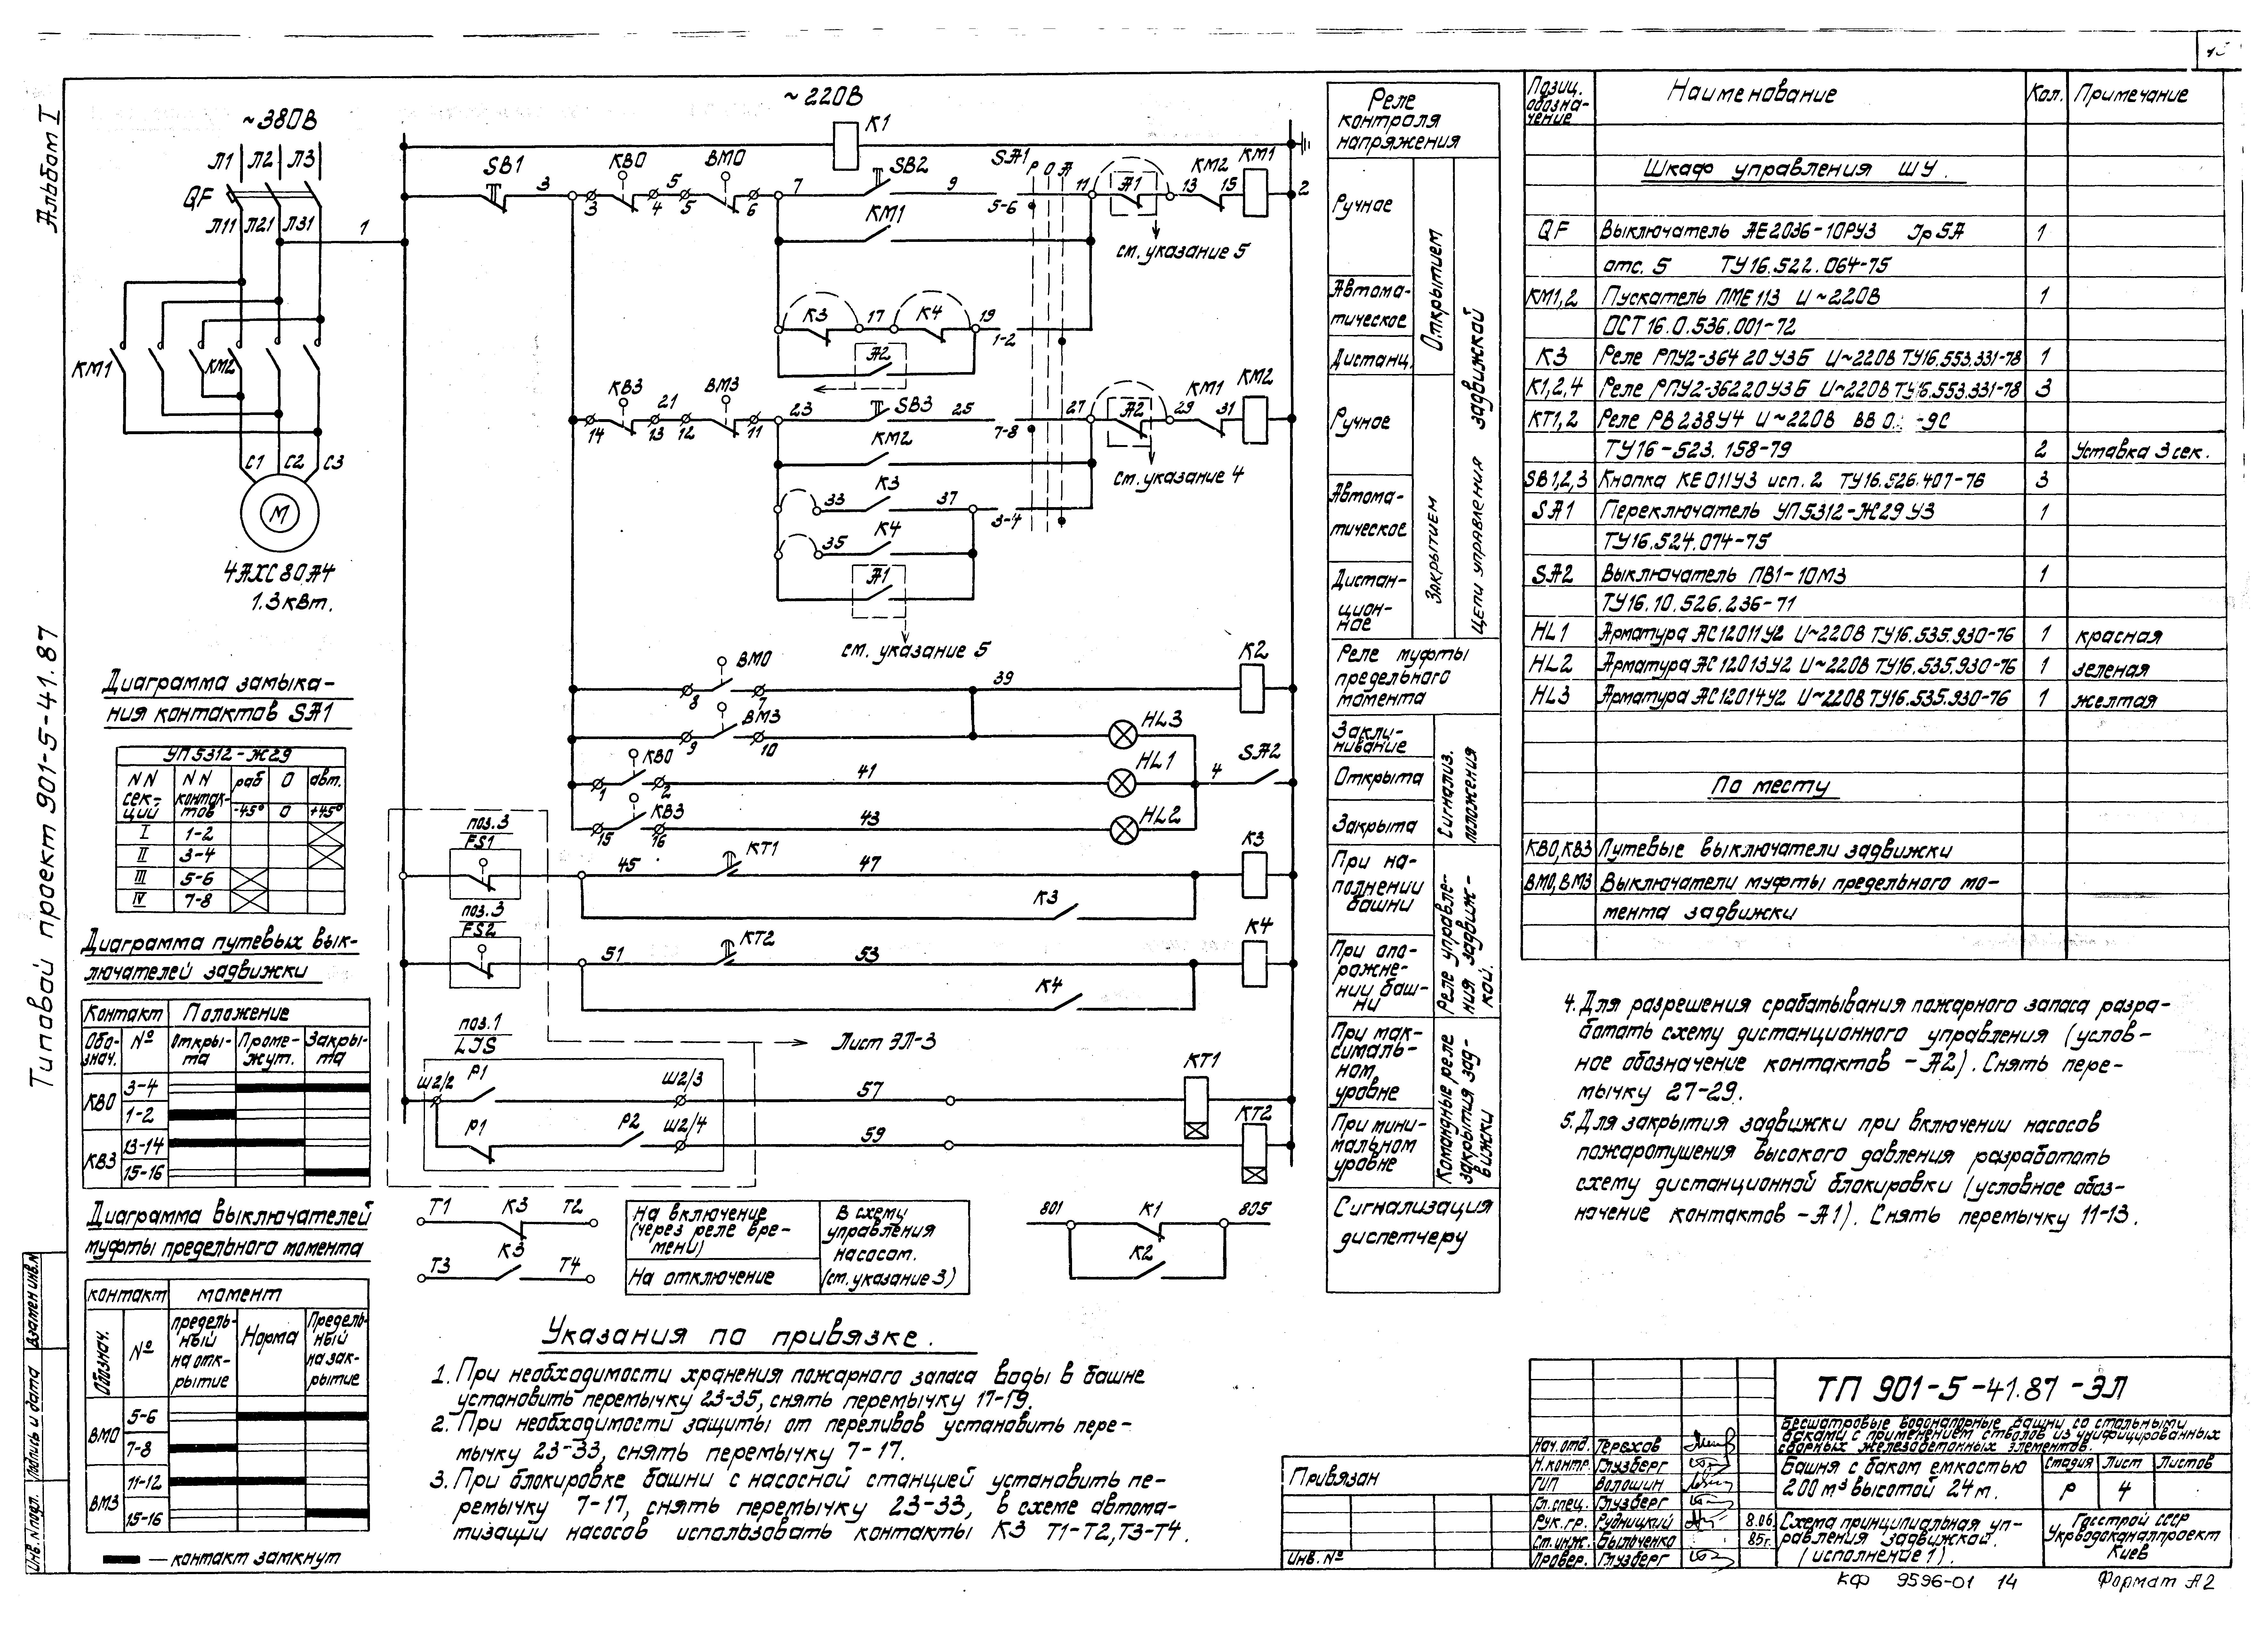 Альбом I
Типовой проект 901-5-41.87
~380В
Л1 Л2 Л3
QF
Л11 Л21 Л31
1
КМ1
КМ2
С1 С2 С3
М
4АХС80А4
1.3кВт.
~220В
К1
SB1 3 КВО 5 ВМО 7 SB2 9 SA1 Р О А 11 А1 13 КМ2 15 КМ1 2
3 4 5 6 5-6
КМ1
см. указание 5
К3 17 К4 19 1-2
А2
КВЗ 21 ВМЗ 23 SB3 25 27 А2 29 КМ1 31 КМ2
14 13 12 11 7-8
КМ2
см. указание 4
33 К3 37 3-4
35 К4
А1
см. указание 5
ВМО 39 К2
8 7
ВМЗ HL3
9 10
КВО 41 HL1 4 SA2
1 2
КВЗ 43 HL2
15 16
поз.3
FS1 45 КТ1 47 К3
К3
поз.3
FS2 51 КТ2 53 К4
К4
поз.1
LIS
Лист ЭЛ-3
Ш2/2 Р1 Ш2/3 57 КТ1
Р1 Р2 Ш2/4 59 КТ2
Т1 К3 Т2
Т3 К3 Т4
На включение
(через реле вре-
мени)
На отключение
В схему
управления
насосом.
(см. указание 3)
801 К1 805
К2
Реле
контроля
напряжения
Ручное
Автома-
тическое
Дистанц.
Открытием
Ручное
Автома-
тическое
Дистан-
цион-
ное
Закрытием
Цепи управления задвижкой
Реле муфты
предельного
момента
Закли-
нивание
Открыта
Закрыта
Сигнализ.
положения
При на-
полнении
башни
При опо-
рожне-
нии баш-
ни
Реле управле-
ния задвиж-
кой.
При мак-
сималь-
ном
уровне
При мини-
мальном
уровне
Командные реле
закрытия зад-
вижки
Сигнализация
диспетчеру
Диаграмма замыка-
ния контактов SA1
УП5312-Ж29
NN секций NN контактов раб 0 авт.
-45° 0 +45°
I 1-2
II 3-4
III 5-6
IV 7-8
Диаграмма путевых вык-
лючателей задвижки
Контакт Положение
Обо-
знач. № Откры-
та Проме-
жут. Закры-
та
КВО 3-4
1-2
КВЗ 13-14
15-16
Диаграмма выключателей
муфты предельного момента
контакт момент
Обознач. № предель-
ный
на отк-
рытие Норма Предель-
ный
на зак-
рытие
ВМО 5-6
7-8
ВМЗ 11-12
15-16
— контакт замкнут
Указания по привязке.
1. При необходимости хранения пожарного запаса воды в башне
установить перемычку 23-35, снять перемычку 17-19.
2. При необходимости защиты от переливов установить пере-
мычку 23-33, снять перемычку 7-17.
3. При блокировке башни с насосной станцией установить пе-
ремычку 7-17, снять перемычку 23-33, в схеме автома-
тизации насосов использовать контакты К3 Т1-Т2, Т3-Т4.
Позиц.
обозна-
чение Наименование Кол. Примечание
Шкаф управления ШУ.
QF Выключатель АЕ2036-10РУЗ Iр 5А 1
отс. 5 ТУ16.522.064-75
КМ1,2 Пускатель ПМЕ113 U~220В 1
ОСТ16.0.536.001-72
К3 Реле РПУ2-364 20 УЗБ U~220В ТУ16.553.331-78 1
К1,2,4 Реле РПУ2-36220УЗБ U~220В ТУ16.553.331-78 3
КТ1,2 Реле РВ238У4 U~220В
ТУ16-523.158-79 2 Уставка 3 сек.
SB1,2,3 Кнопка КЕ011УЗ исп. 2 ТУ16.526.407-76 3
SA1 Переключатель УП5312-Ж29 УЗ 1
ТУ16.524.074-75
SA2 Выключатель ПВ1-10МЗ 1
ТУ16.10.526.236-71
HL1 Арматура АС12011У2 U~220В ТУ16.535.930-76 1 красная
HL2 Арматура АС12013У2 U~220В ТУ16.535.930-76 1 зеленая
HL3 Арматура АС12014У2 U~220В ТУ16.535.930-76 1 желтая
По месту
КВО,КВЗ Путевые выключатели задвижки
ВМО,ВМЗ Выключатели муфты предельного мо-
мента задвижки
4. Для разрешения срабатывания пожарного запаса разра-
ботать схему дистанционного управления (услов-
ное обозначение контактов - А2). Снять пере-
мычку 27-29.
5. Для закрытия задвижки при включении насосов
пожаротушения высокого давления разработать
схему дистанционной блокировки (условное обоз-
начение контактов - А1). Снять перемычку 11-13.
Привязан
Инв. №
ТП 901-5-41.87 -ЭЛ
Бесшатровые водонапорные башни со стальными
баками с применением стволов из унифицированных
сборных железобетонных элементов.
Нач.отд. Терехов
Н.контр. Глузберг
ГИП Волошин
Гл.спец. Глузберг
Рук.гр. Рудницкий 8.06.
Ст.инж. Былоченко 85г.
Провер. Глузберг
Башня с баком емкостью
200 м³ высотой 24 м.
Стадия Лист Листов
Р 4
Схема принципиальная уп-
равления задвижкой.
(исполнение 1).
Госстрой СССР
Укрводоканалпроект
Киев
КФ 9596-01 14 Формат А2
Взамен инв.N
Подпись и дата
Инв.Nподл.